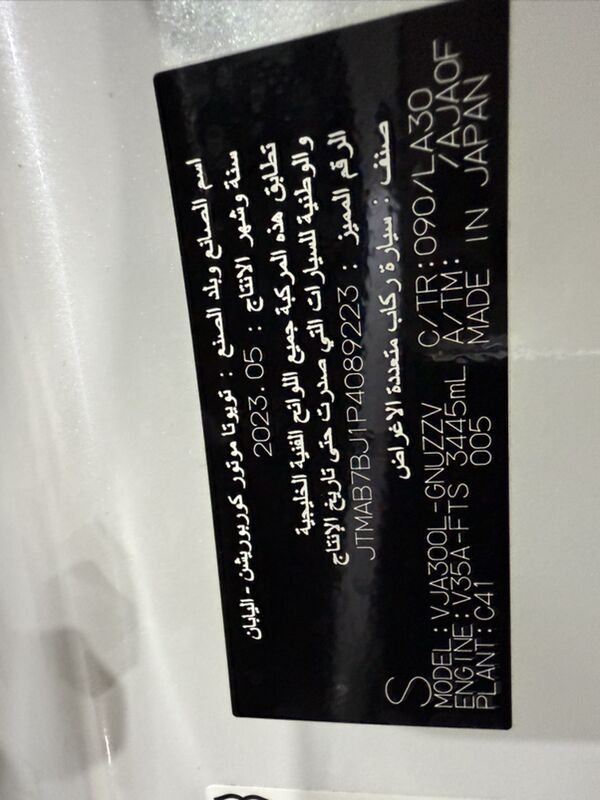 اسم الصانع وبلد الصنع : تويوتا موتور كوربوريشن - اليابان
سنة وشهر الانتاج : 2023.05
تطابق هذه المركبة جميع اللوائح الفنية الخليجية
والوطنية للسيارات التي صدرت حتى تاريخ الإنتاج
الرقم المميز : JTMAB7BJ1P4089223
صنف : سيارة ركاب متعددة الاغراض
S
MODEL:VJA300L-GNUZZV C/TR:090/LA30
ENGINE:V35A-FTS 3445mL A/TM: /AJA0F
PLANT:C41 005 MADE IN JAPAN